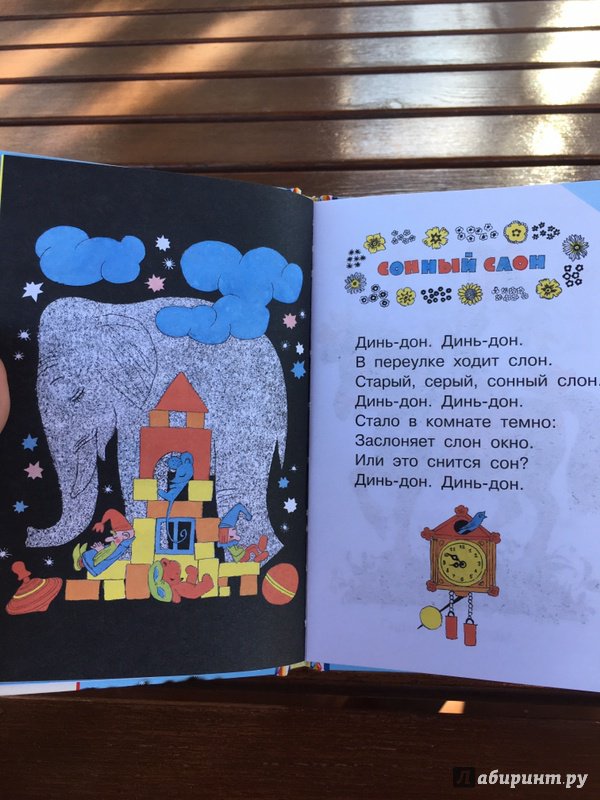 СОННЫЙ СЛОН
Динь-дон. Динь-дон.
В переулке ходит слон.
Старый, серый, сонный слон.
Динь-дон. Динь-дон.
Стало в комнате темно:
Заслоняет слон окно.
Или это снится сон?
Динь-дон. Динь-дон.
лабиринт.ру